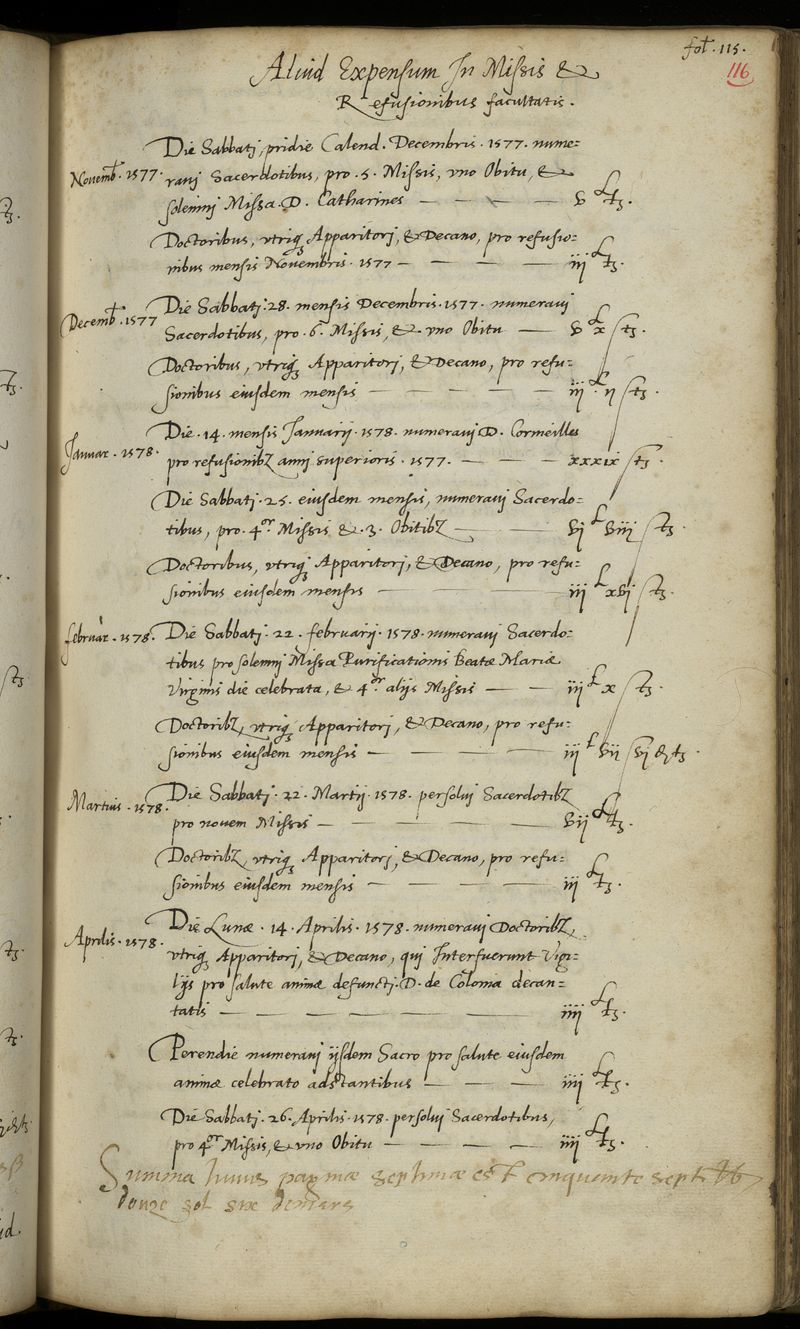 fol. 115.
116
Aliud Expensum In Missis &
Refusionibus facultatis.
Die Sabbatj, pridie Calend. Decembris. 1577. nume=
Nouemb. 1577. rauj Sacerdotibus, pro .5. Missis, vno Obitu, &
solemnj Missa D. Catharines — — — — v L ts.
Doctoribus, vtriq Apparitorj, & Decano, pro refusio=
nibus mensis Nouembris. 1577 — — — — iij L ts.
Die Sabbatj. 28. mensis Decembris. 1577. numerauj
Decemb. 1577
Sacerdotibus, pro .6. Missis, &. vno Obitu — v L x s ts.
Doctoribus, vtriq Apparitorj, & Decano, pro refu=
sionibus eiusdem mensis — — — — — iij L ij s ts.
Die .14. mensis Januarij. 1578. numerauj D. Cormeilles
Januar. 1578.
pro refusionibz annj superioris. 1577. — — — xxxix s ts.
Die Sabbatj. 25. eiusdem mensis, numerauj Sacerdo=
tibus, pro .4or. Missis &. 3. Obitibz — — vj L viij s ts.
Doctoribus, vtriq Apparitorj, & Decano, pro refu=
sionibus eiusdem mensis — — — iij L xvj s ts.
februar. 1578. Die Sabbatj. 22. februarij. 1578. numerauj Sacerdo=
tibus pro solemnj Missa Purificationis Beatæ Mariæ
Virginis die celebrata, & 4or. alijs Missis — — iij L x s ts.
Doctoribz, vtriq Apparitorj, & Decano, pro refu=
sionibus eiusdem mensis — — — — iij L vij s vj d ts.
Die Sabbatj. 22. Martij. 1578. persoluj Sacerdotibz
Martius. 1578.
pro nouem Missis — — — — — vij L ts.
Doctoribz, vtriq Apparitorj, & Decano, pro refu=
sionibus eiusdem mensis — — — — iij L ts.
Die Lunæ. 14. Aprilis. 1578. numerauj Doctoribz,
Aprilis. 1578.
vtriq Apparitorj, & Decano, quj Interfuerunt Vigi=
lijs pro salute animæ defunctj. D. de Coloma decan=
tatis — — — — — — — iiij L ts.
Perendie numerauj ijsdem Sacro pro salute eiusdem
animæ celebrato adstantibus — — — iiij L ts.
Die Sabbatj. 26. Aprilis. 1578. persoluj Sacerdotibus,
pro 4or Missis, & vno Obitu — — — — iiij L ts.
Summa huius paginæ septimæ est cinquante sept
douze sol six deniers